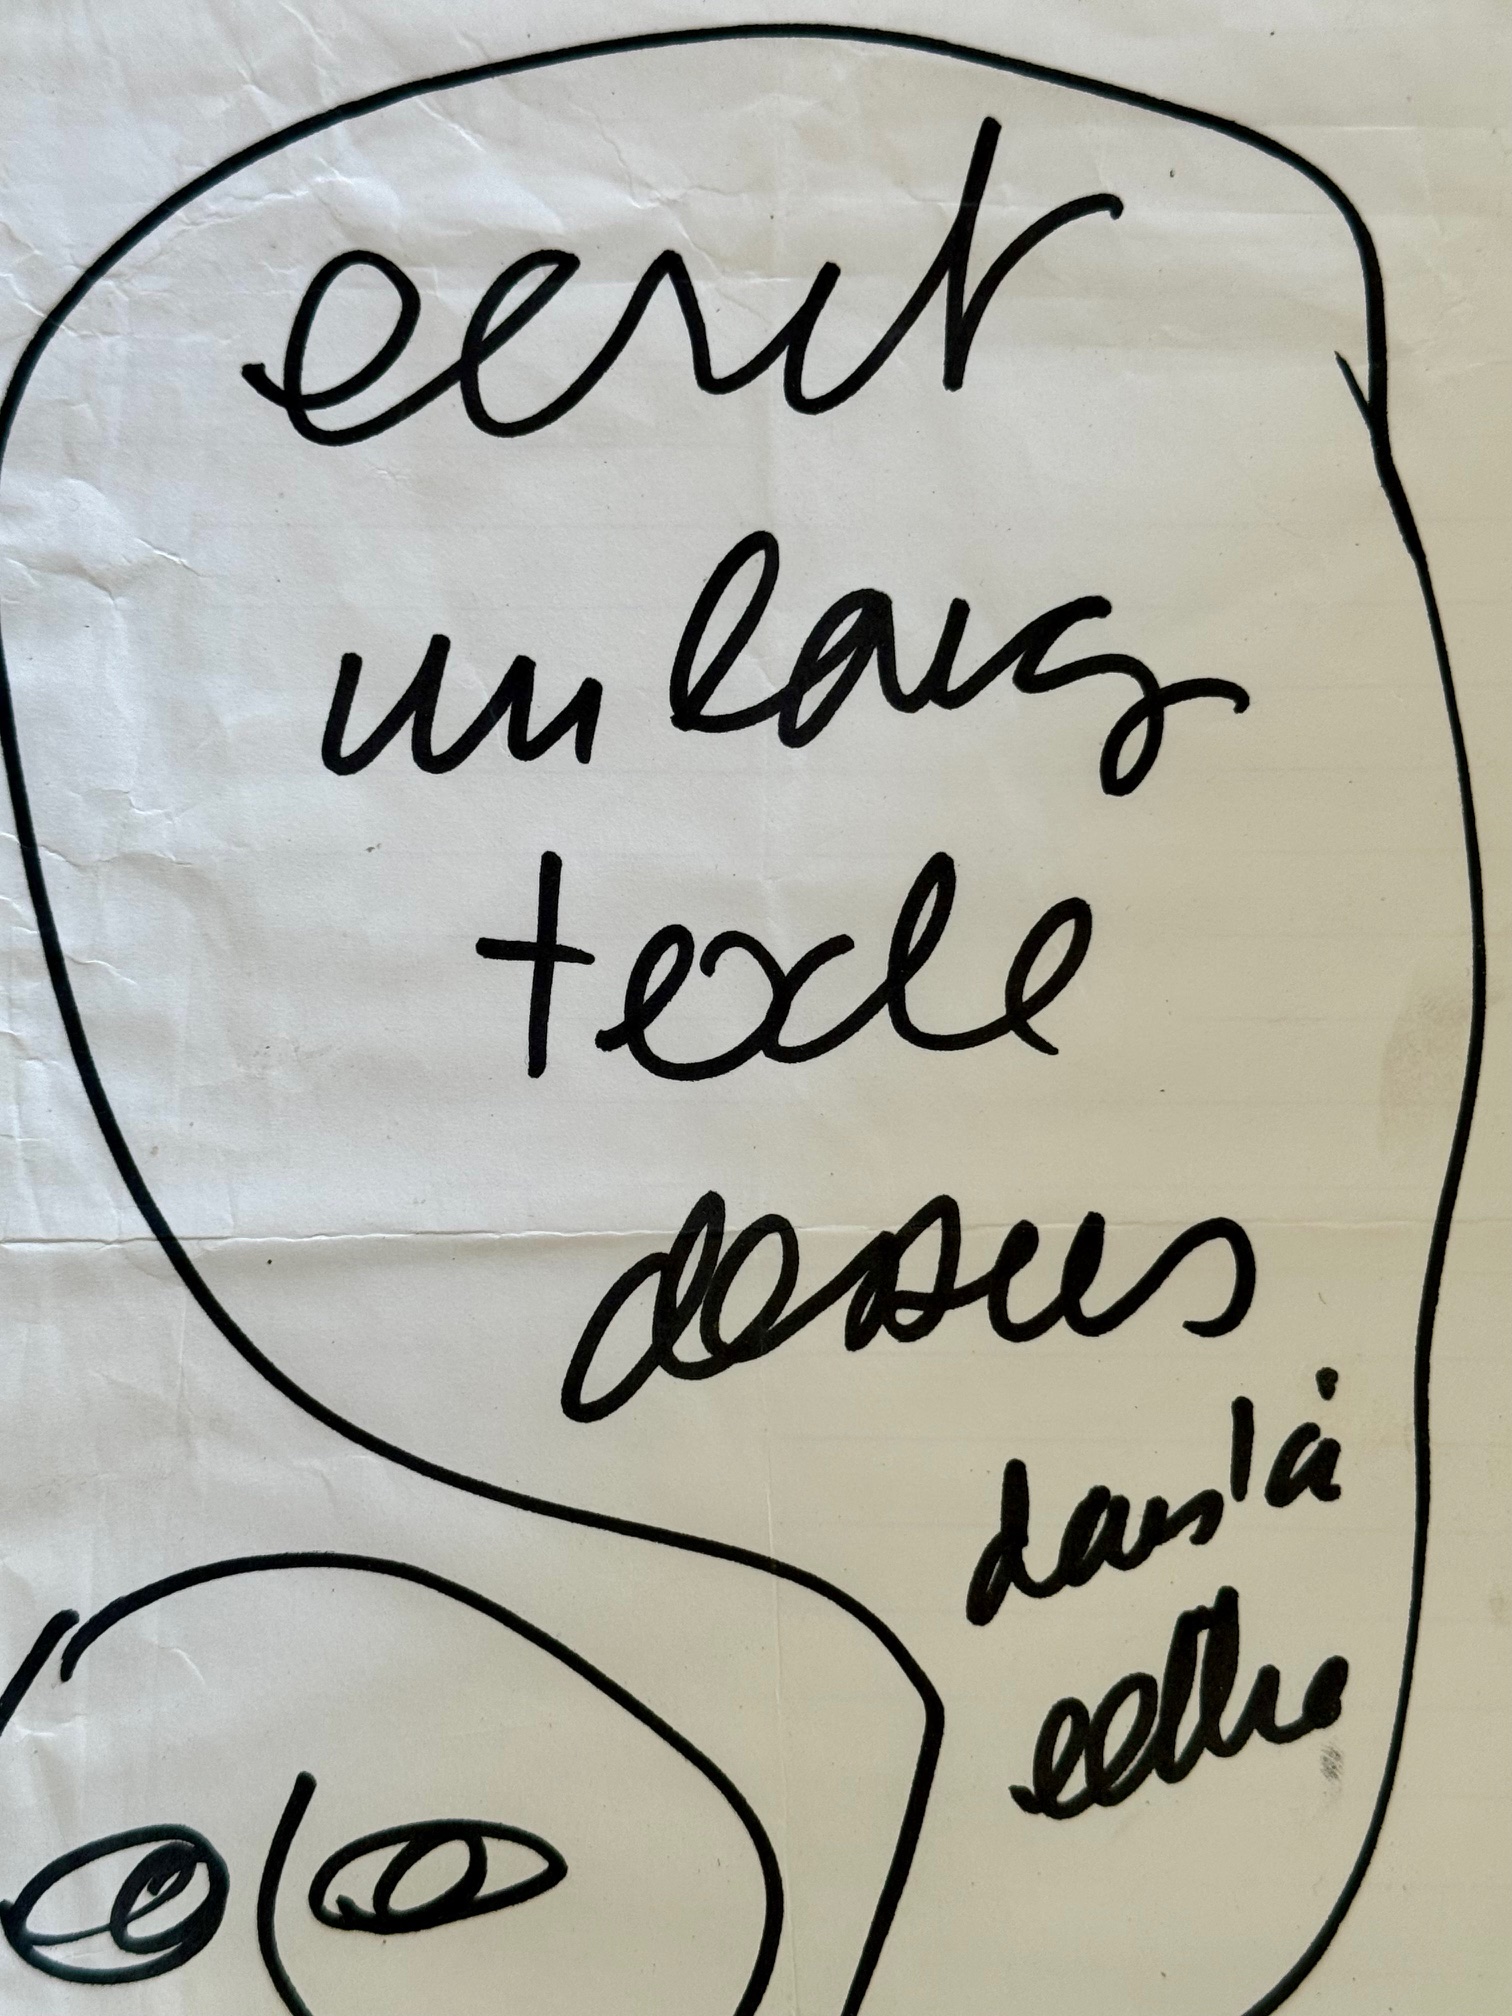 ecrit
un long
texte
dessus
dans la